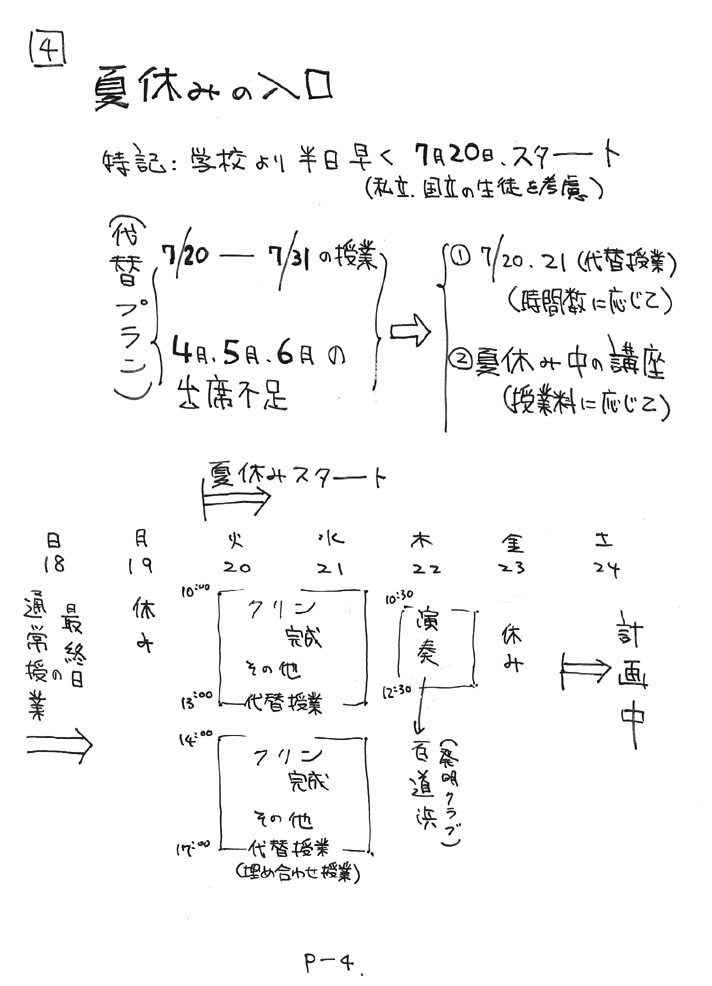 4
夏休みの入口
特記：学校より半日早く 7月20日、スタート
(私立、国立の生徒を考慮)
(代替プラン)
7/20 ― 7/31の授業
4月、5月、6月の
出席不足
① 7/20、21 (代替授業)
(時間数に応じて)
②夏休み中の講座
(授業料に応じて)
夏休みスタート
日 月 火 水 木 金 土
18 19 20 21 22 23 24
通常授業
の
最終日
休み
10:00
クリン
完成
その他
13:00 代替授業
14:00
クリン
完成
その他
17:00 代替授業
(埋め合わせ授業)
10:30
演奏
12:30
百道浜
(発明クラブ)
休み
計画中
P-4.